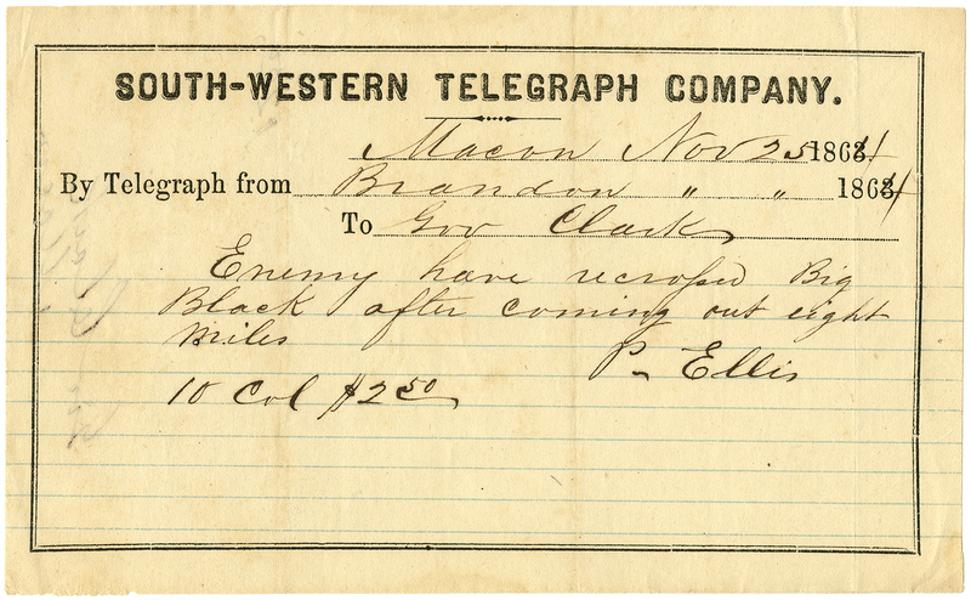 SOUTH-WESTERN TELEGRAPH COMPANY.
Macon Nov 25 1864
By Telegraph from Brandon " " 1864
To Gov Clark
Enemy have recrossed Big
Black after coming out eight
miles
P. Ellis
10 Col $2 50